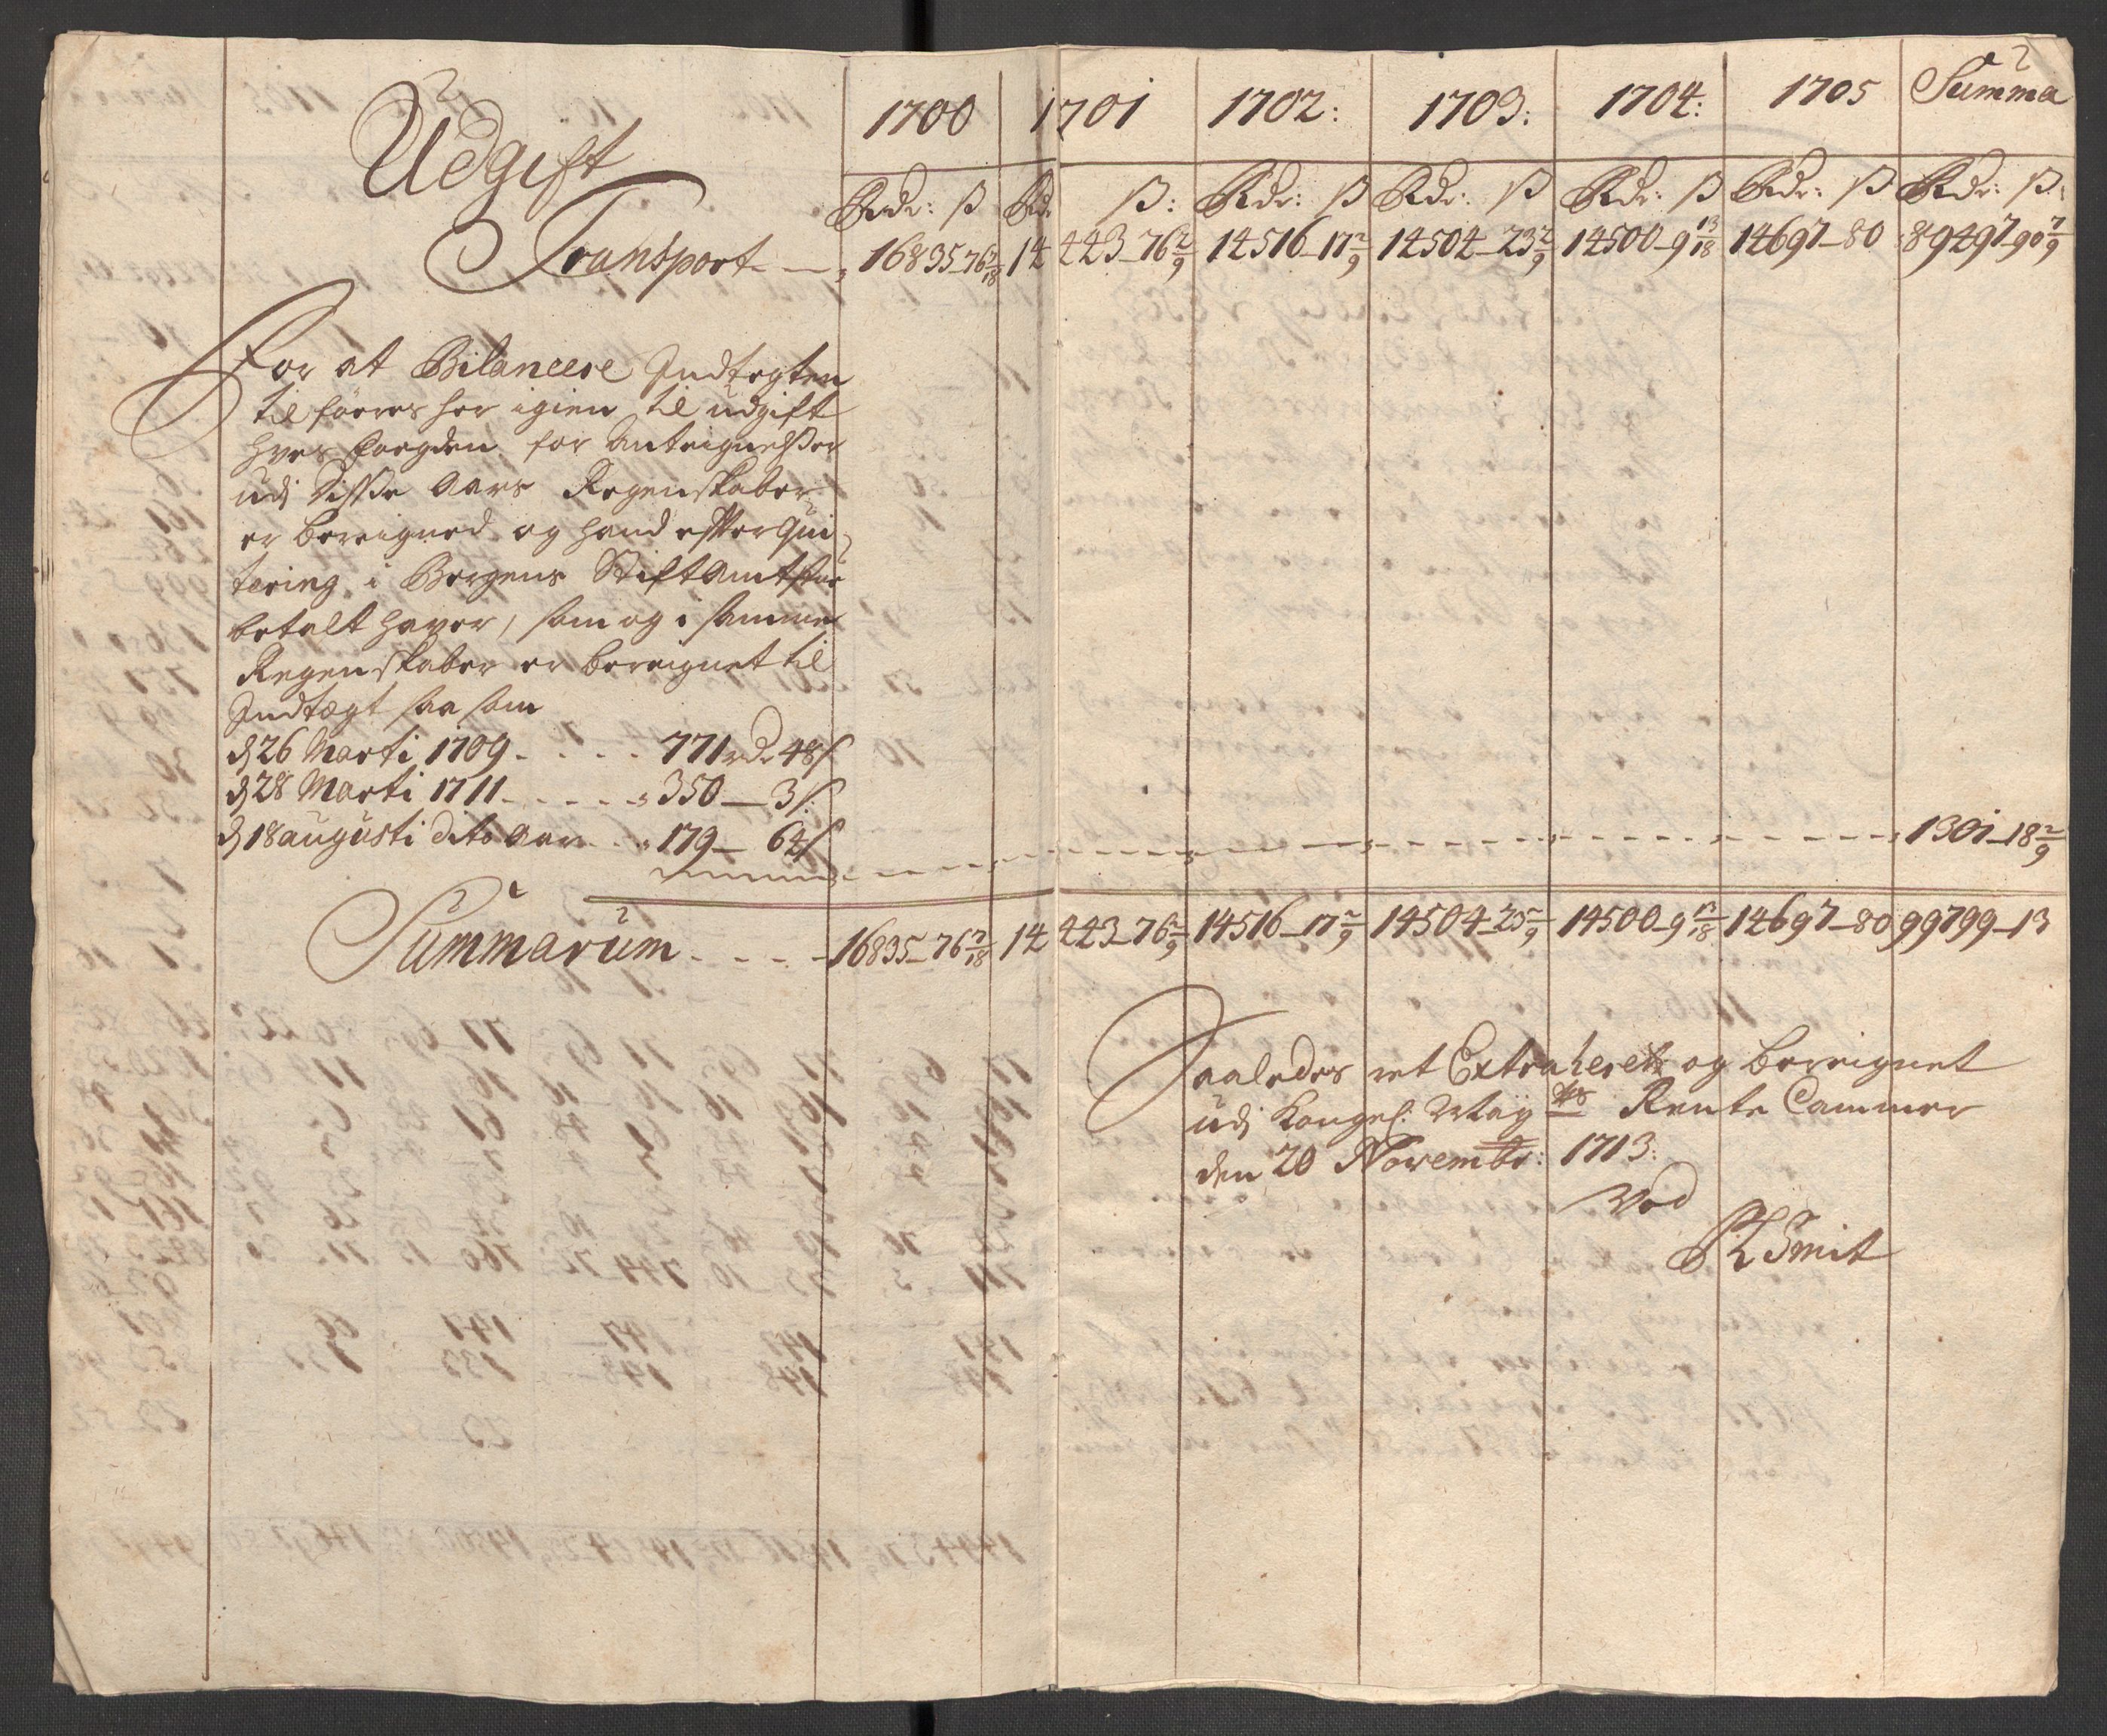 Udgift
1700 1701 1702: 1703: 1704: 1705 Summa
Rdr: ß Rdr ß: Rdr: ß Rdr: ß Rdr: ß Rdr: ß Rdr: ß:
Transport - - 16835-76 7/18 14443-76 2/9 14516-17 2/9 14504-23 2/9 14500-9 13/18 14697-80 89497-90 7/9
For at Bilancere Indtegten
til föeres her igien til udgift
hves fogden for Anteignelßer
udj disße Aars Regenskaber
er bereigned og hand efter Qui-
tering i Bergens StiftAmtstue
betalt haver, som og i samme
Regenskaber er bereignet til
Indtægt saa som
d 26 Marti 1709 - - - - 771 rdr 48 ß
d 28 Marti 1711 - - - - 350 - 3 ß:
d 18 augusti dito Aar - - 179 - 64 ß - - - - 1301-18 2/9
Summarum - - - - 16835-76 7/18 14443-76 2/9 14516-17 2/9 14504-25 2/9 14500-9 13/18 14697-80 99799-13
Saaledes ret Extraheret og bereignet
udj Kongel: May ts Rente Cammer
den 20 Novembr: 1713:
Ved
Smit